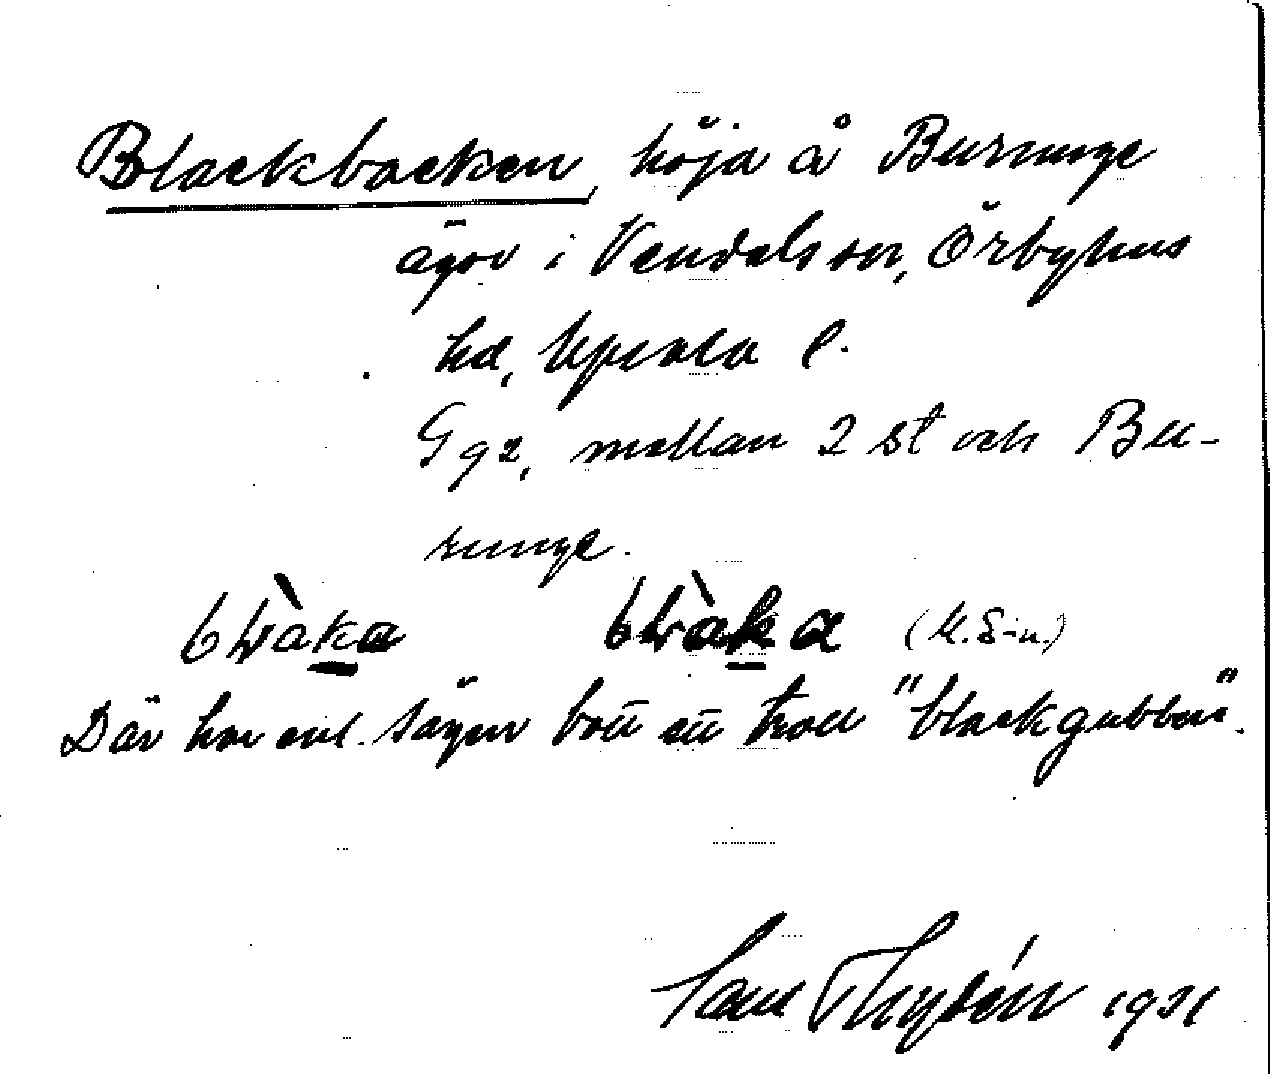 Blackbacken, höjd å Burunge
ägor i Vendels sn, Örbyhus
hd, Upsala l.
Gge, mellan 2 st och Bu-
runge.
(M. S-n.)
Där har enl. sägen bott ett troll "blackgubben".
Paul Thydén 1931